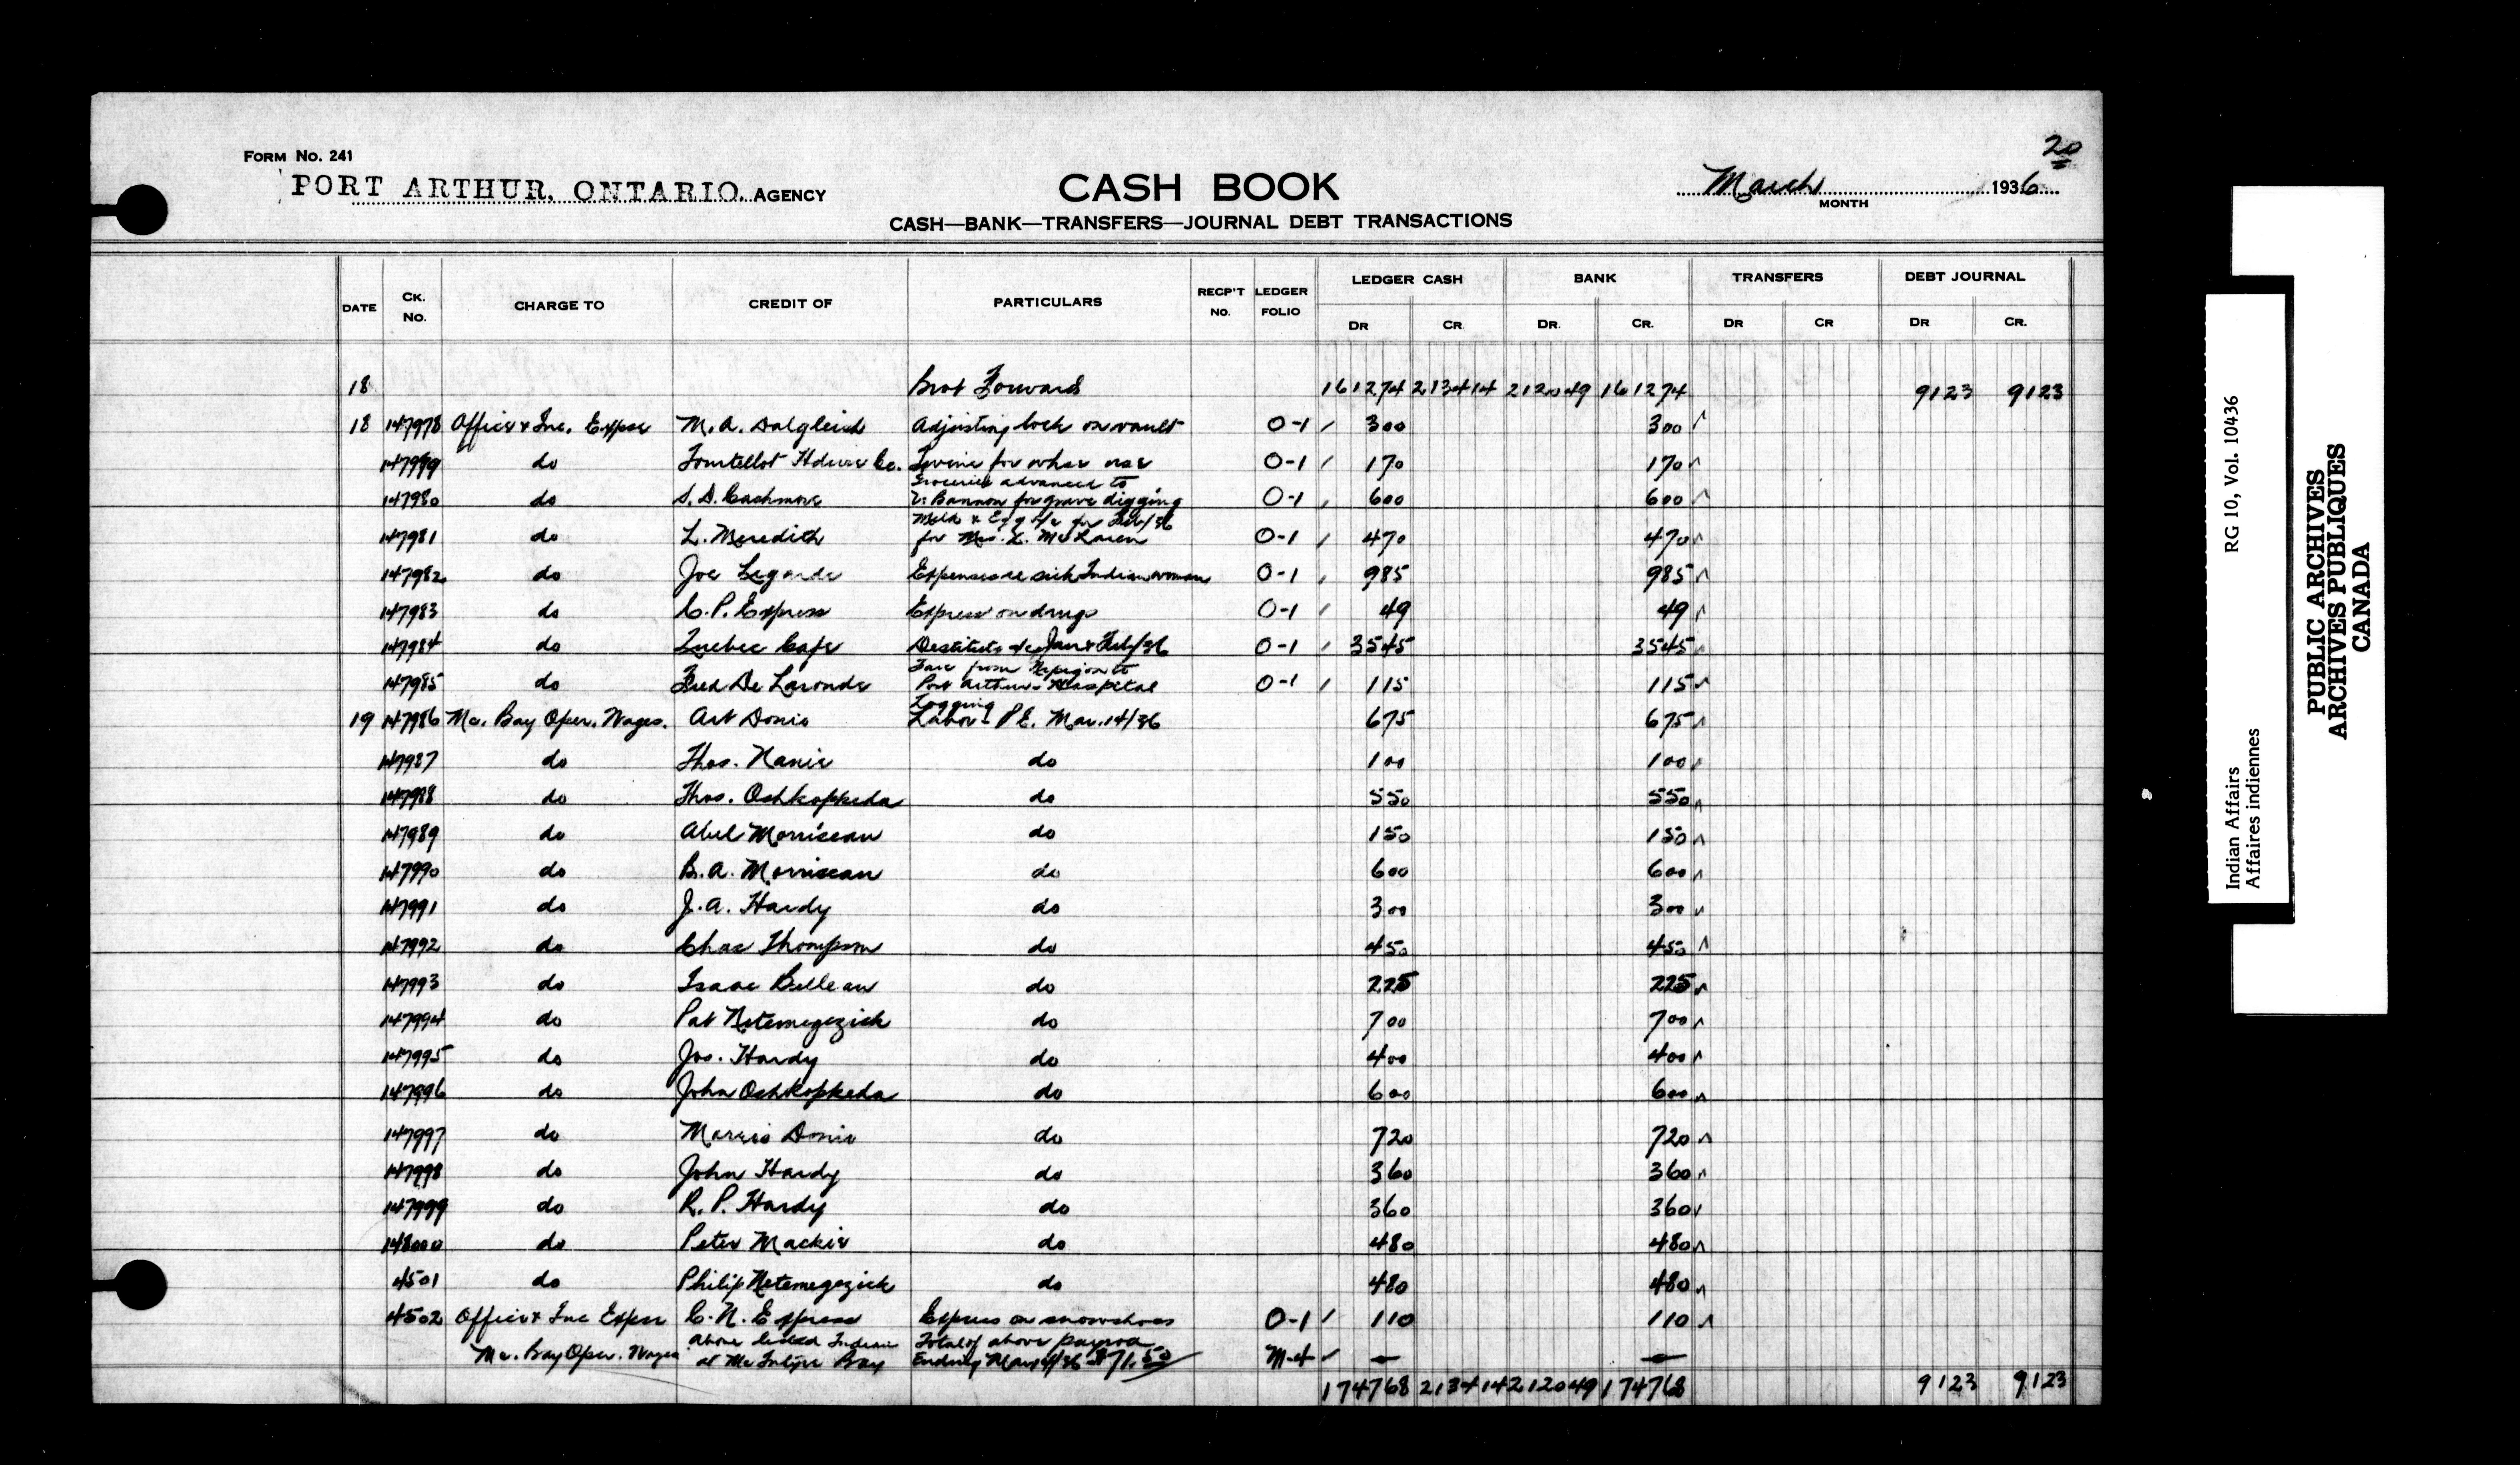 20
FORM NO. 241
PORT ARTHUR, ONTARIO. AGENCY
CASH BOOK
March 1936
MONTH
CASH—BANK—TRANSFERS—JOURNAL DEBT TRANSACTIONS
DATE CK. NO. CHARGE TO CREDIT OF PARTICULARS RECP'T NO. LEDGER FOLIO LEDGER CASH BANK TRANSFERS DEBT JOURNAL
DR CR. DR. CR. DR CR DR CR.
18 Brot Forward 161274 213414 212049 161274 9123 9123
18 147978 Office & Inc. Expse M. A. Dalgleish Adjusting lock on vault O-1 300 300
147979 do Co. for O-1 170 170
147980 do S. D. Cashmore Groceries advanced to Bannon for grave digging O-1 600 600
147981 do L. Meredith Milk & Egg a/c for Feb/36 for Mrs. L. McLaren O-1 470 470
147982 do Joe Legarde Expenses re sick Indian woman O-1 985 985
147983 do C. P. Express Express on drugs O-1 49 49
147984 do Quebec Cafe Destitute a/c Jan & Feb/36 O-1 3545 3545
147985 do Fred De Laronde Fare from Nipigon to Port Arthur Hospital O-1 115 115
19 147986 Mc. Bay Oper. Wages. Art Donio Logging Labor - P.E. Mar. 14/36 675 675
147987 do Thos. Nanie do 100 100
147988 do Thos. Oshkopkeda do 550 550
147989 do Abel Morriseau do 150 150
147990 do B. A. Morriseau do 600 600
147991 do J. A. Hardy do 300 300
147992 do Chas Thompson do 450 450
147993 do Isaac Belleau do 225 225
147994 do Pat Netemegezick do 700 700
147995 do Jos. Hardy do 400 400
147996 do John Oshkopkeda do 600 600
147997 do Donio do 720 720
147998 do John Hardy do 360 360
147999 do R. P. Hardy do 360 360
148000 do Peter Mackie do 480 480
4501 do Philip Netemegezick do 480 480
4502 Office & Inc Expse C. N. Express Express on snowshoes O-1 110 110
Mc. Bay Oper. Wages above listed Indians at McIntyre Bay Total of above payroll Ending Mar 14/36 $71.50 M-4 — —
174768 213414 212049 174768 9123 9123
Indian Affairs RG 10, Vol. 10436
Affaires indiennes
PUBLIC ARCHIVES
ARCHIVES PUBLIQUES
CANADA